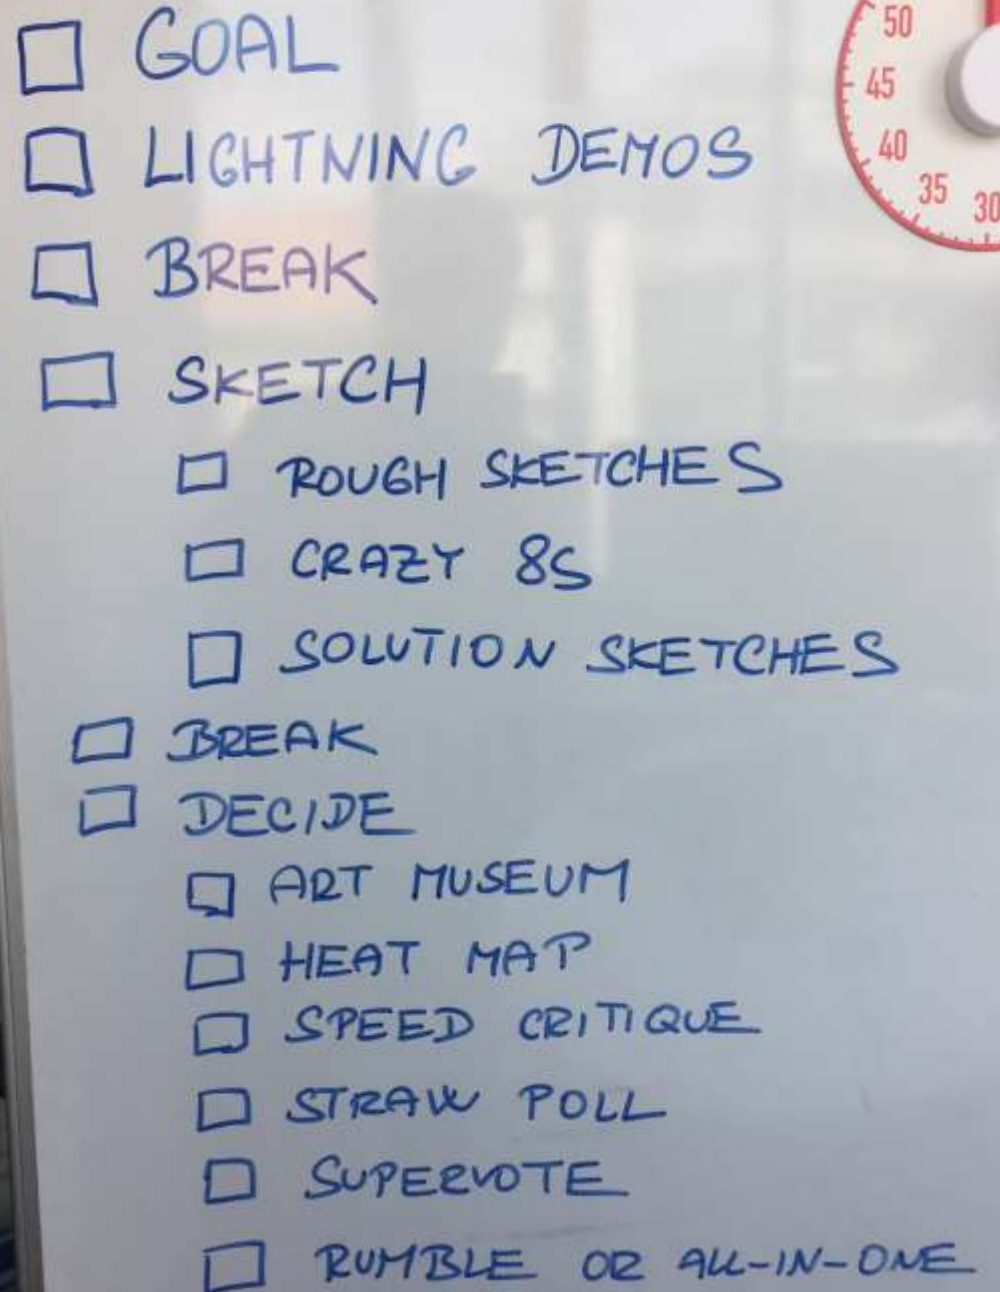 GOAL
LIGHTNING DEMOS
BREAK
SKETCH
ROUGH SKETCHES
CRAZY 8S
SOLUTION SKETCHES
BREAK
DECIDE
ART MUSEUM
HEAT MAP
SPEED CRITIQUE
STRAW POLL
SUPERVOTE
RUMBLE OR ALL-IN-ONE
50
45
40
35
30